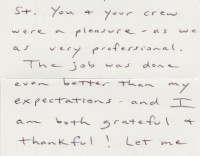 St. You & your crew
were a pleasure - as we
as very professional.
The job was done
even better than my
expectations - and I
am both grateful &
thankful! Let me